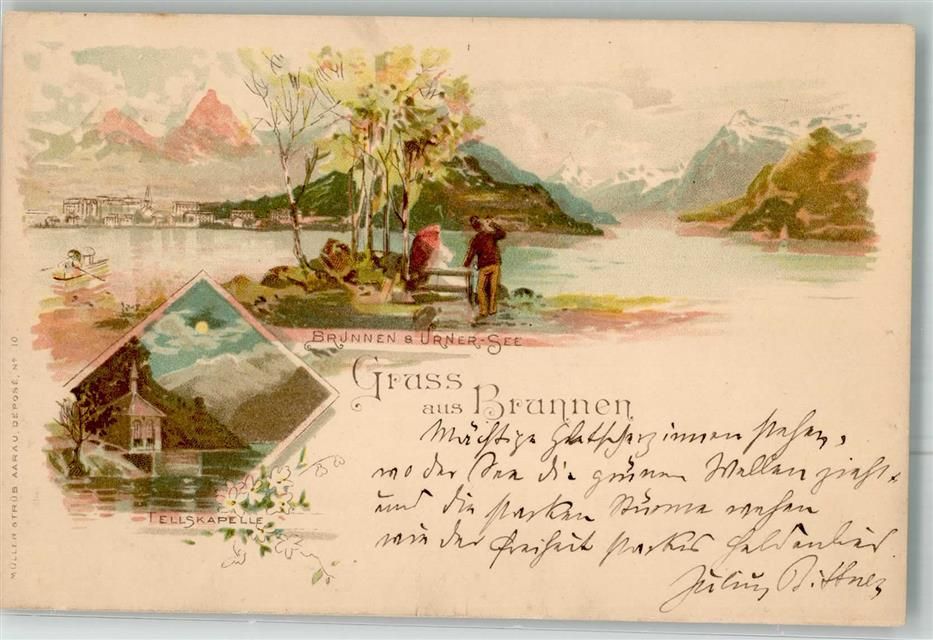 BRUNNEN & URNER-SEE
Gruss
aus Brunnen
TELLSKAPELLE
MÜLLER & TRÜB AARAU, DEPOSÉ, Nº 10
Mächtige Gletscherzinnen stehen,
wo der See die grünen Wellen zieht
und die starken Stürme wehen
wie der Freiheit starkes Heldenlied
Julius Bittner